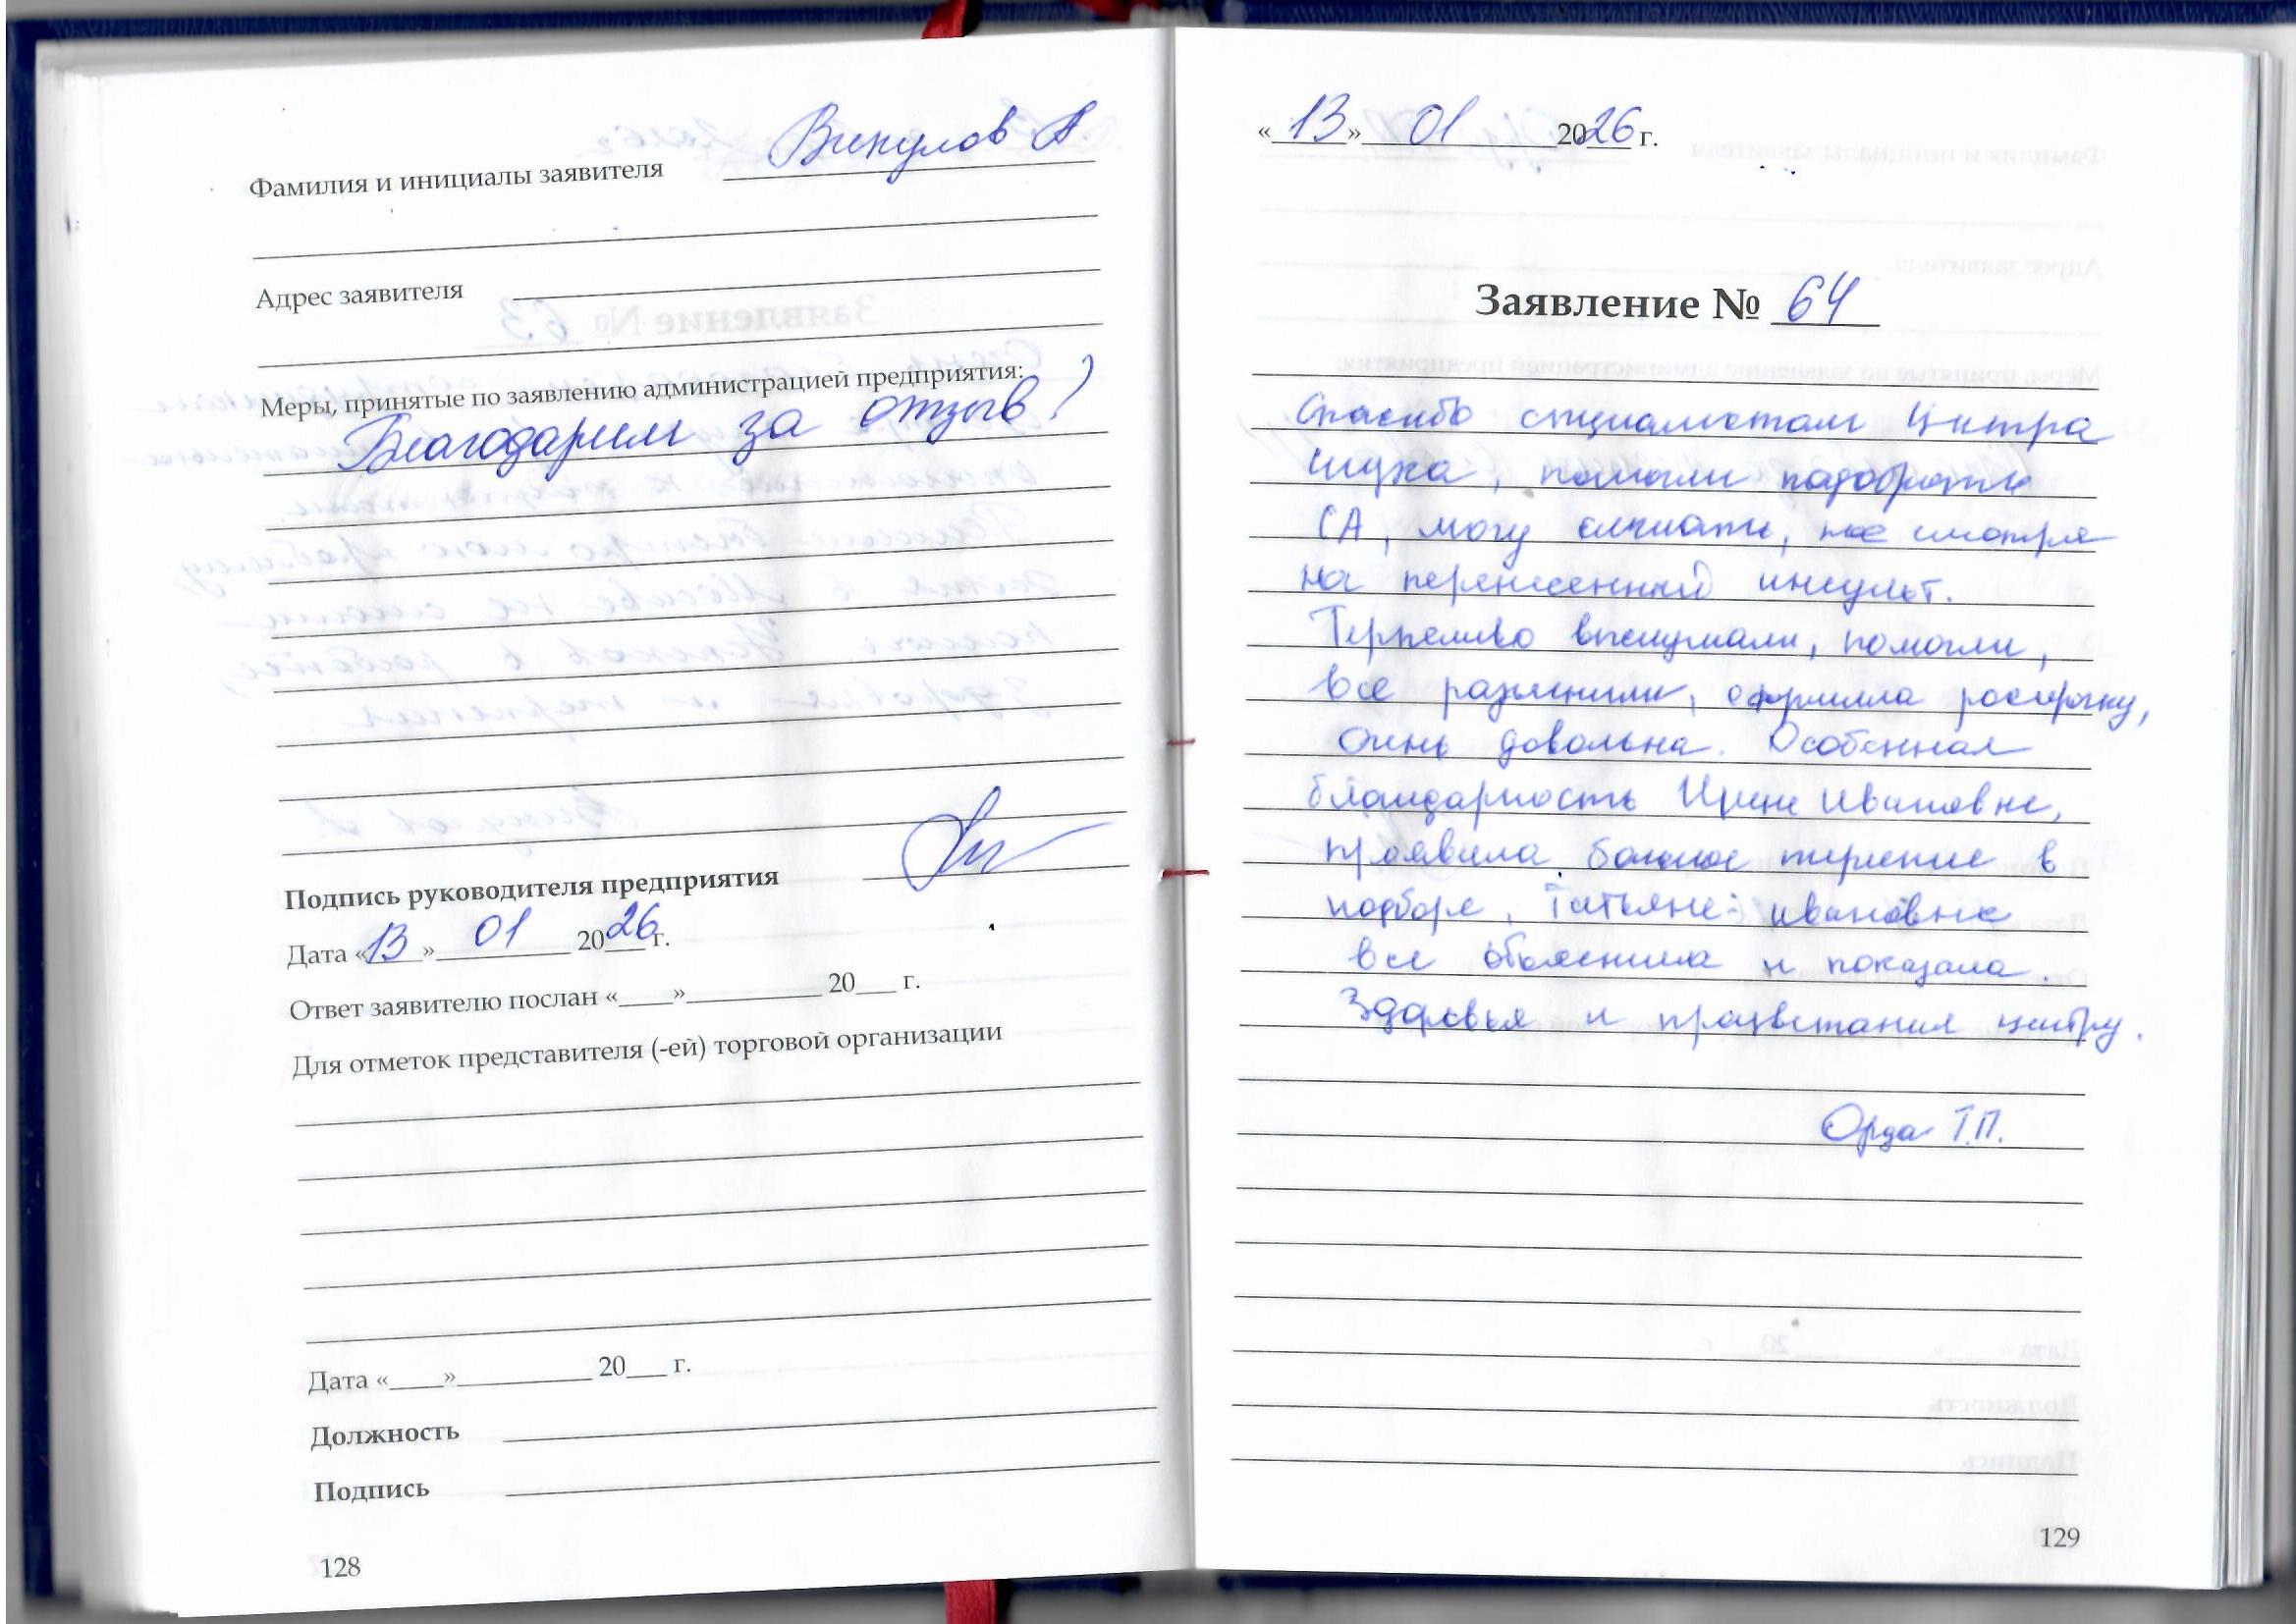 Фамилия и инициалы заявителя Викулов А
Адрес заявителя
Меры, принятые по заявлению администрацией предприятия:
Благодарим за отзыв!
Подпись руководителя предприятия
Дата «13» 01 2026 г.
Ответ заявителю послан «____»__________ 20___ г.
Для отметок представителя (-ей) торговой организации
Дата «____»__________ 20___ г.
Должность
Подпись
128
«13» 01 2026 г.
Заявление № 64
Спасибо специалистам Центра
слуха, помогли подобрать
СА, могу слышать, не смотря
на перенесенный инсульт.
Терпеливо выслушали, помогли,
все разъяснили, оформила рассрочку,
очень довольна. Особенная
благодарность Ирине Ивановне,
проявила большое терпение в
подборе, Татьяне ивановне
все объяснила и показала.
Здоровья и процветания центру.
Орда Т.П.
129